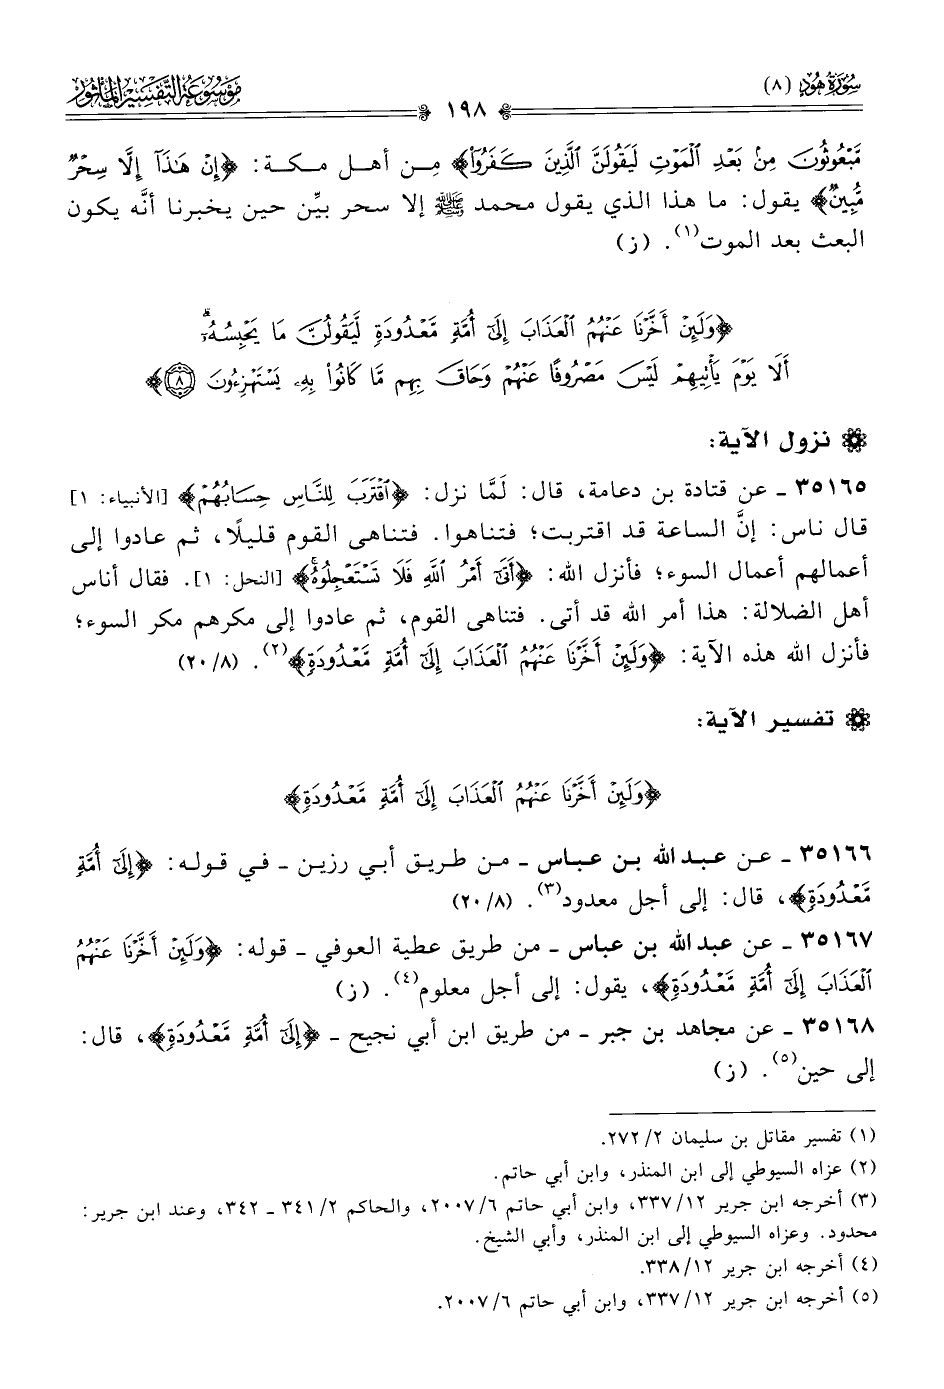 سُورَةُ هُودٍ (٨)
١٩٨
مَوْسُوعَةُ التَّفْسِيرِ المَأْثُورِ
مَّبْعُوثُونَ مِنۢ بَعْدِ ٱلْمَوْتِ لَيَقُولَنَّ ٱلَّذِينَ كَفَرُوٓا۟﴾ مِن أهل مكة: ﴿إِنْ هَٰذَآ إِلَّا سِحْرٌ
مُّبِينٌ﴾ يقول: ما هذا الذي يقول محمد ﷺ إلا سحر بيِّن حين يخبرنا أنَّه يكون
البعث بعد الموت(١). (ز)
﴿وَلَئِنْ أَخَّرْنَا عَنْهُمُ ٱلْعَذَابَ إِلَىٰٓ أُمَّةٍ مَّعْدُودَةٍ لَّيَقُولُنَّ مَا يَحْبِسُهُۥٓۗ
أَلَا يَوْمَ يَأْتِيهِمْ لَيْسَ مَصْرُوفًا عَنْهُمْ وَحَاقَ بِهِم مَّا كَانُوا۟ بِهِۦ يَسْتَهْزِءُونَ ٨﴾
نزول الآية:
٣٥١٦٥ ـ عن قتادة بن دعامة، قال: لَمَّا نزل: ﴿ٱقْتَرَبَ لِلنَّاسِ حِسَابُهُمْ﴾ [الأنبياء: ١]
قال ناس: إنَّ الساعة قد اقتربت؛ فتناهوا. فتناهى القوم قليلًا، ثم عادوا إلى
أعمالهم أعمال السوء؛ فأنزل الله: ﴿أَتَىٰٓ أَمْرُ ٱللَّهِ فَلَا تَسْتَعْجِلُوهُۚ﴾ [النحل: ١]. فقال أناس
أهل الضلالة: هذا أمر الله قد أتى. فتناهى القوم، ثم عادوا إلى مكرهم مكر السوء؛
فأنزل الله هذه الآية: ﴿وَلَئِنْ أَخَّرْنَا عَنْهُمُ ٱلْعَذَابَ إِلَىٰٓ أُمَّةٍ مَّعْدُودَةٍ﴾(٢). (٨/ ٢٠)
تفسير الآية:
﴿وَلَئِنْ أَخَّرْنَا عَنْهُمُ ٱلْعَذَابَ إِلَىٰٓ أُمَّةٍ مَّعْدُودَةٍ﴾
٣٥١٦٦ ـ عن عبد الله بن عباس ـ من طريق أبي رزين ـ في قوله: ﴿إِلَىٰٓ أُمَّةٍ
مَّعْدُودَةٍ﴾، قال: إلى أجل معدود(٣). (٨/ ٢٠)
٣٥١٦٧ ـ عن عبد الله بن عباس ـ من طريق عطية العوفي ـ قوله: ﴿وَلَئِنْ أَخَّرْنَا عَنْهُمُ
ٱلْعَذَابَ إِلَىٰٓ أُمَّةٍ مَّعْدُودَةٍ﴾، يقول: إلى أجل معلوم(٤). (ز)
٣٥١٦٨ ـ عن مجاهد بن جبر ـ من طريق ابن أبي نجيح ـ ﴿إِلَىٰٓ أُمَّةٍ مَّعْدُودَةٍ﴾، قال:
إلى حين(٥). (ز)
(١) تفسير مقاتل بن سليمان ٢/ ٢٧٢.
(٢) عزاه السيوطي إلى ابن المنذر، وابن أبي حاتم.
(٣) أخرجه ابن جرير ١٢/ ٣٣٧، وابن أبي حاتم ٦/ ٢٠٠٧، والحاكم ٢/ ٣٤١ ـ ٣٤٢، وعند ابن جرير:
محدود. وعزاه السيوطي إلى ابن المنذر، وأبي الشيخ.
(٤) أخرجه ابن جرير ١٢/ ٣٣٨.
(٥) أخرجه ابن جرير ١٢/ ٣٣٧، وابن أبي حاتم ٦/ ٢٠٠٧.